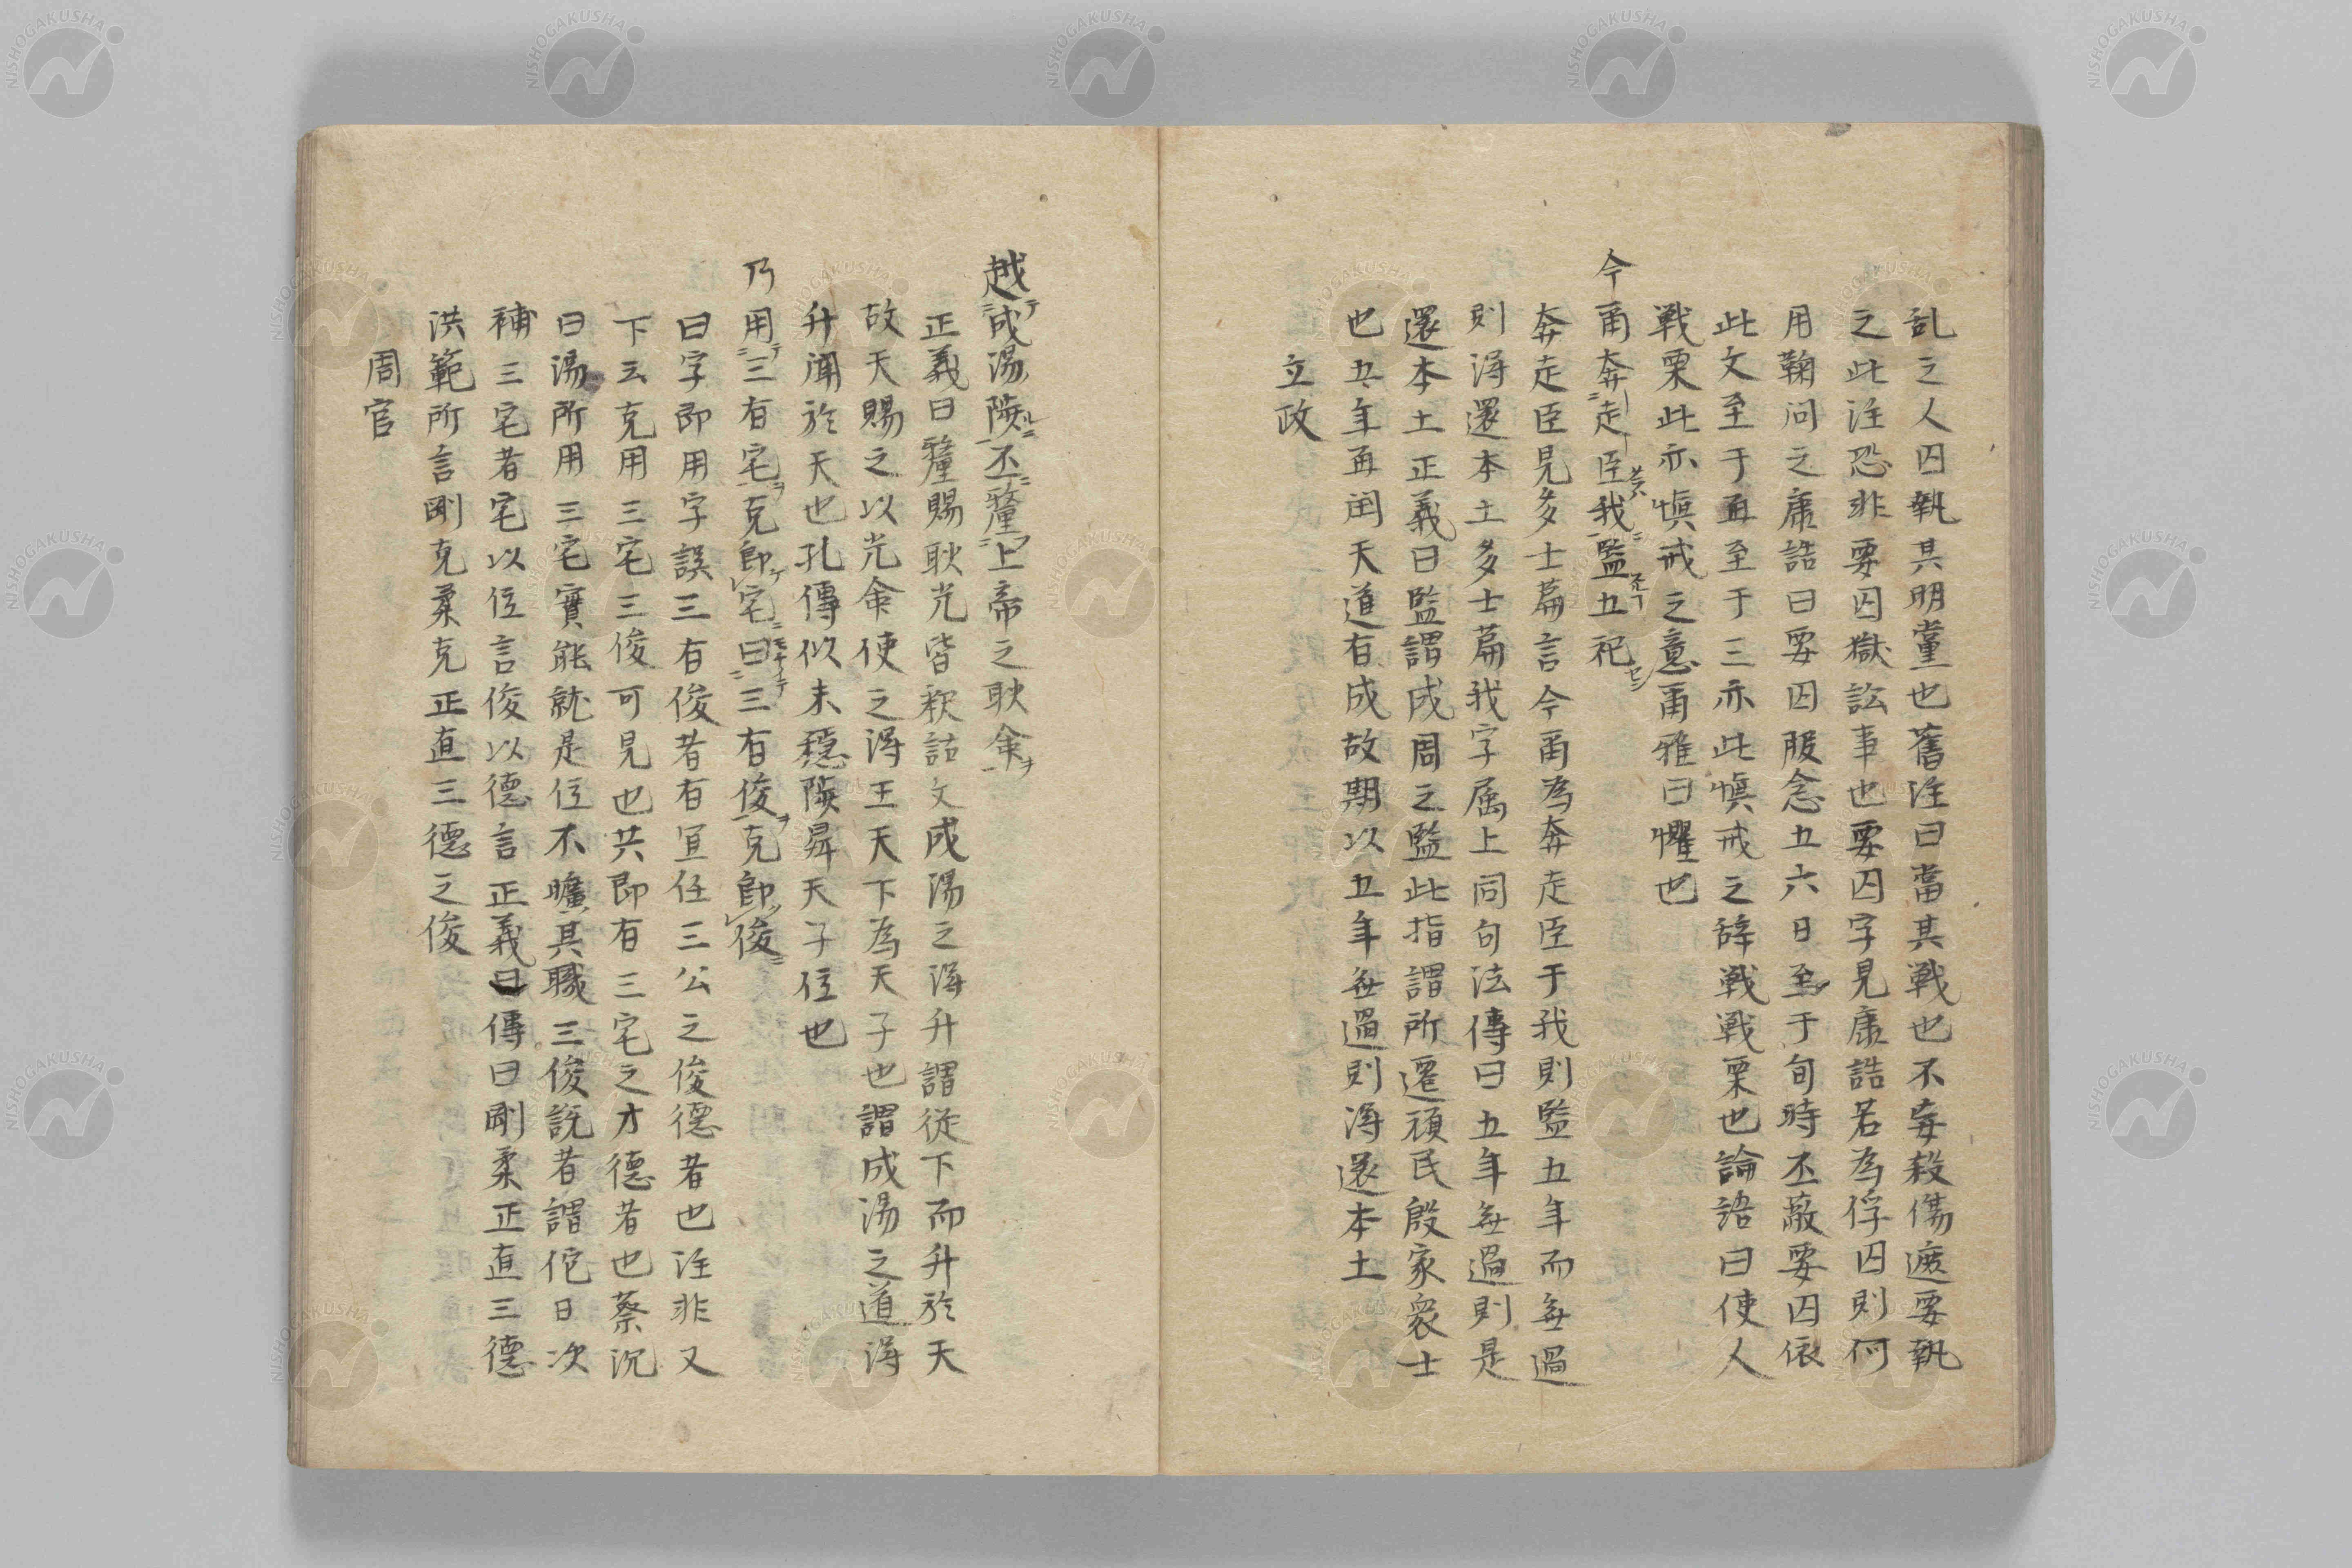 乱之人囚執其明黨也舊注曰當其戦也不妄殺傷遮要執
之此注恐非要囚獄訟事也要囚字見康誥若為俘囚則何
用鞠问之康誥曰要囚服念五六日至于旬時丕蔽要囚依
此文至于再至于三亦此慎戒之辞戦戦栗也論語曰使人
戦栗此亦慎戒之意甬雅曰懼也
今甬奔走臣我監五祀
奔走臣見多士篇言今甬為奔走臣于我則監五年而無過
則得還本土多士篇我字属上同句法傳曰五年無過則是
還本土正義曰監謂成周之監此指謂所遷頑民殷家衆士
也五年再閏天道有成故期以五年無過則得還本土
立政
越成湯陟丕釐上帝之耿命
正義曰釐賜耿光皆釈詁文成湯之得升謂従下而升於天
故天賜之以光命使之得王天下為天子也謂成湯之道得
升聞於天也孔傳似未穏陟昇天子位也
乃用三有宅克即宅曰三有俊克即俊
曰字即用字誤三有俊者有宜任三公之俊德者也注非又
下云克用三宅三俊可見也共即有三宅之才德者也蔡沉
曰湯所用三宅實能就是位不曠其職三俊説者謂佗日次
補三宅者宅以位言俊以德言正義曰傳曰剛柔正直三德
洪範所言剛克柔克正直三德之俊
周官